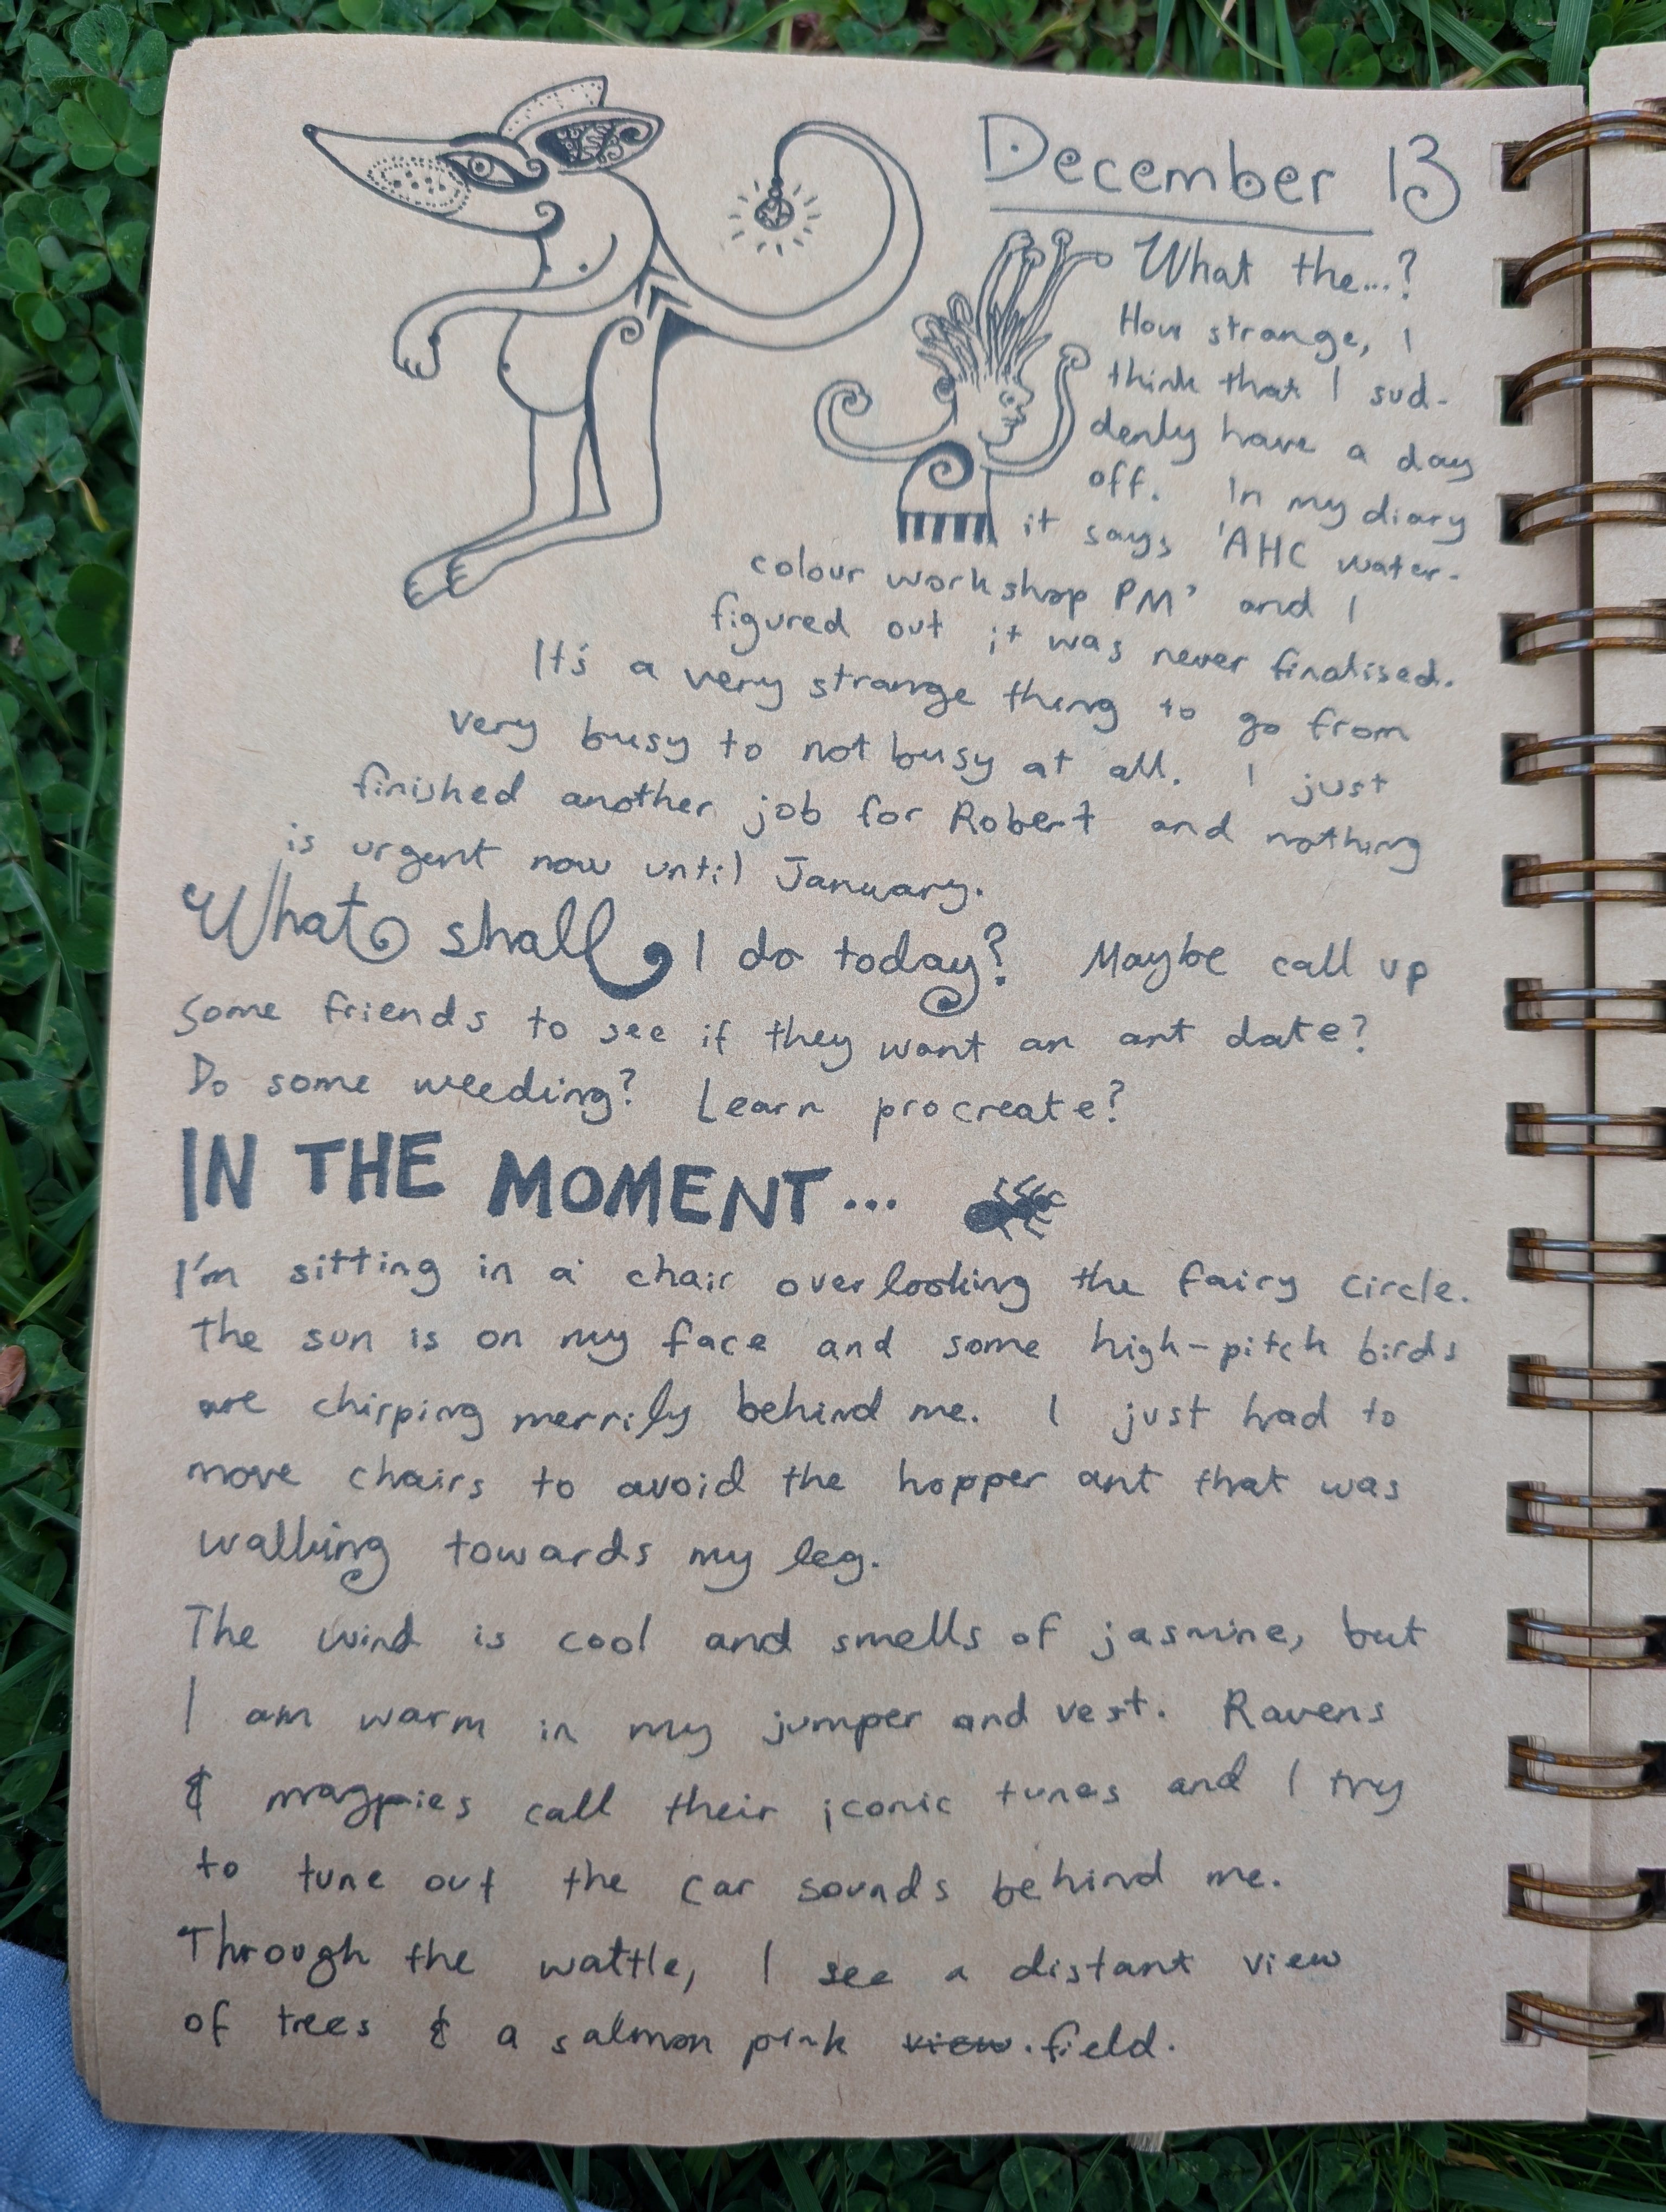 December 13
What the...?
How strange, I
think that I sud-
denly have a day
off. In my diary
it says 'AHC water-
colour workshop PM' and I
figured out it was never finalised.
It's a very strange thing to go from
very busy to not busy at all. I just
finished another job for Robert and nothing
is urgent now until January.
What shall I do today? Maybe call up
some friends to see if they want an art date?
Do some weeding? Learn procreate?
IN THE MOMENT...
I'm sitting in a chair overlooking the fairy circle.
The sun is on my face and some high-pitch birds
are chirping merrily behind me. I just had to
move chairs to avoid the hopper ant that was
walking towards my leg.
The wind is cool and smells of jasmine, but
I am warm in my jumper and vest. Ravens
& magpies call their iconic tunes and I try
to tune out the car sounds behind me.
Through the wattle, I see a distant view
of trees & a salmon pink view. field.